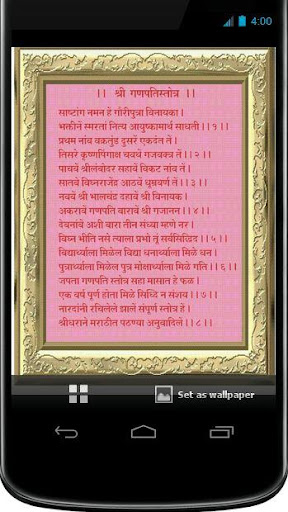 4:00
।। श्री गणपतिस्तोत्र ।।
साष्टांग नमन हे गौरीपुत्रा विनायका।
भक्तीनें स्मरतां नित्य आयुष्कामार्थ साधती।।१।।
प्रथम नांव वक्रतुंड दुसरें एकदंत तें।
तिसरे कृष्णपिंगाक्ष चवथें गजवक्त्र तें।।२।।
पाचवें श्रीलंबोदर सहावें विकट नांव तें।
सातवे विघ्नराजेंद्र आठवें धूम्रवर्ण तें।।३।।
नववें श्री भालचंद्र दहावें श्री विनायक।
अकरावें गणपति बारावें श्री गजानन।।४।।
देवनांवें अशी बारा तीन संध्या म्हणे नर।
विघ्न भीति नसे त्याला प्रभो तूं सर्वसिद्धिद।।५।।
विद्यार्थ्याला मिळेल विद्या धनार्थ्याला मिळे धन।
पुत्रार्थ्याला मिळेल पुत्र मोक्षार्थ्याला मिळे गति।।६।।
जपता गणपति स्तोत्र सहा मासात हे फळ।
एक वर्ष पूर्ण होता मिळे सिध्दि न संशय।।७।।
नारदांनी रचिलेलें झालें संपूर्ण स्तोत्र हें।
श्रीधराने मराठीत पठण्या अनुवादिलें।।८।।
Set as wallpaper